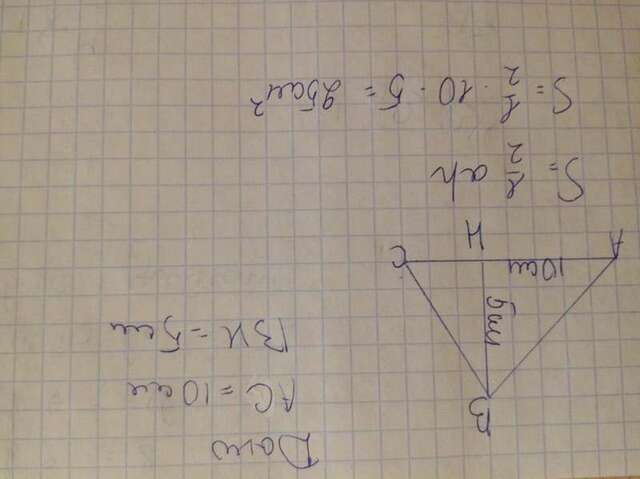 Дано
AC = 10см
BH = 5см
B
5см
10см
A
H
C
S = 1/2 ah
S = 1/2 · 10 · 5 = 25см²